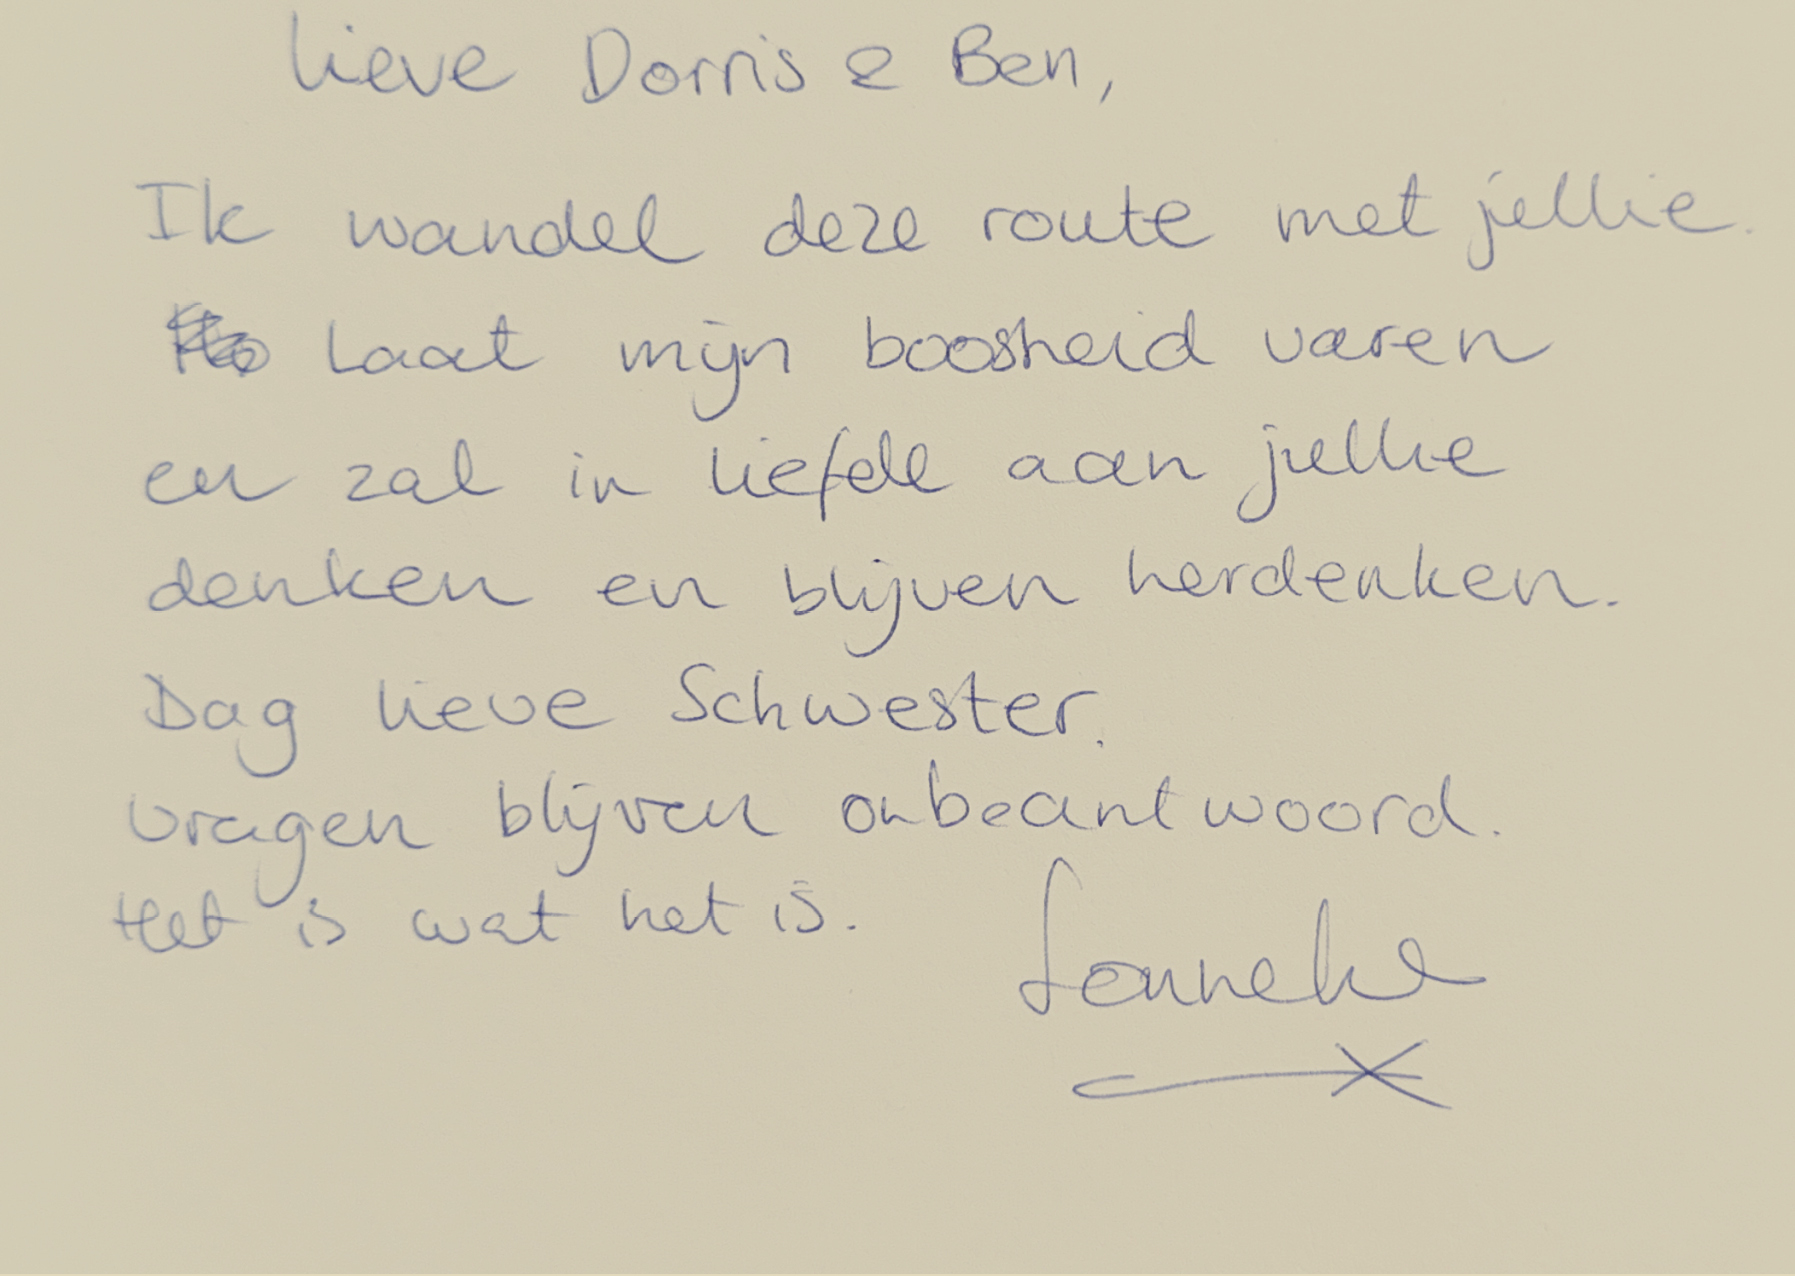 Lieve Dorris & Ben,
Ik wandel deze route met jullie.
Laat mijn boosheid varen
en zal in liefde aan jullie
denken en blijven herdenken.
Dag lieve Schwester.
Vragen blijven onbeantwoord.
Het is wat het is.
Lonneke